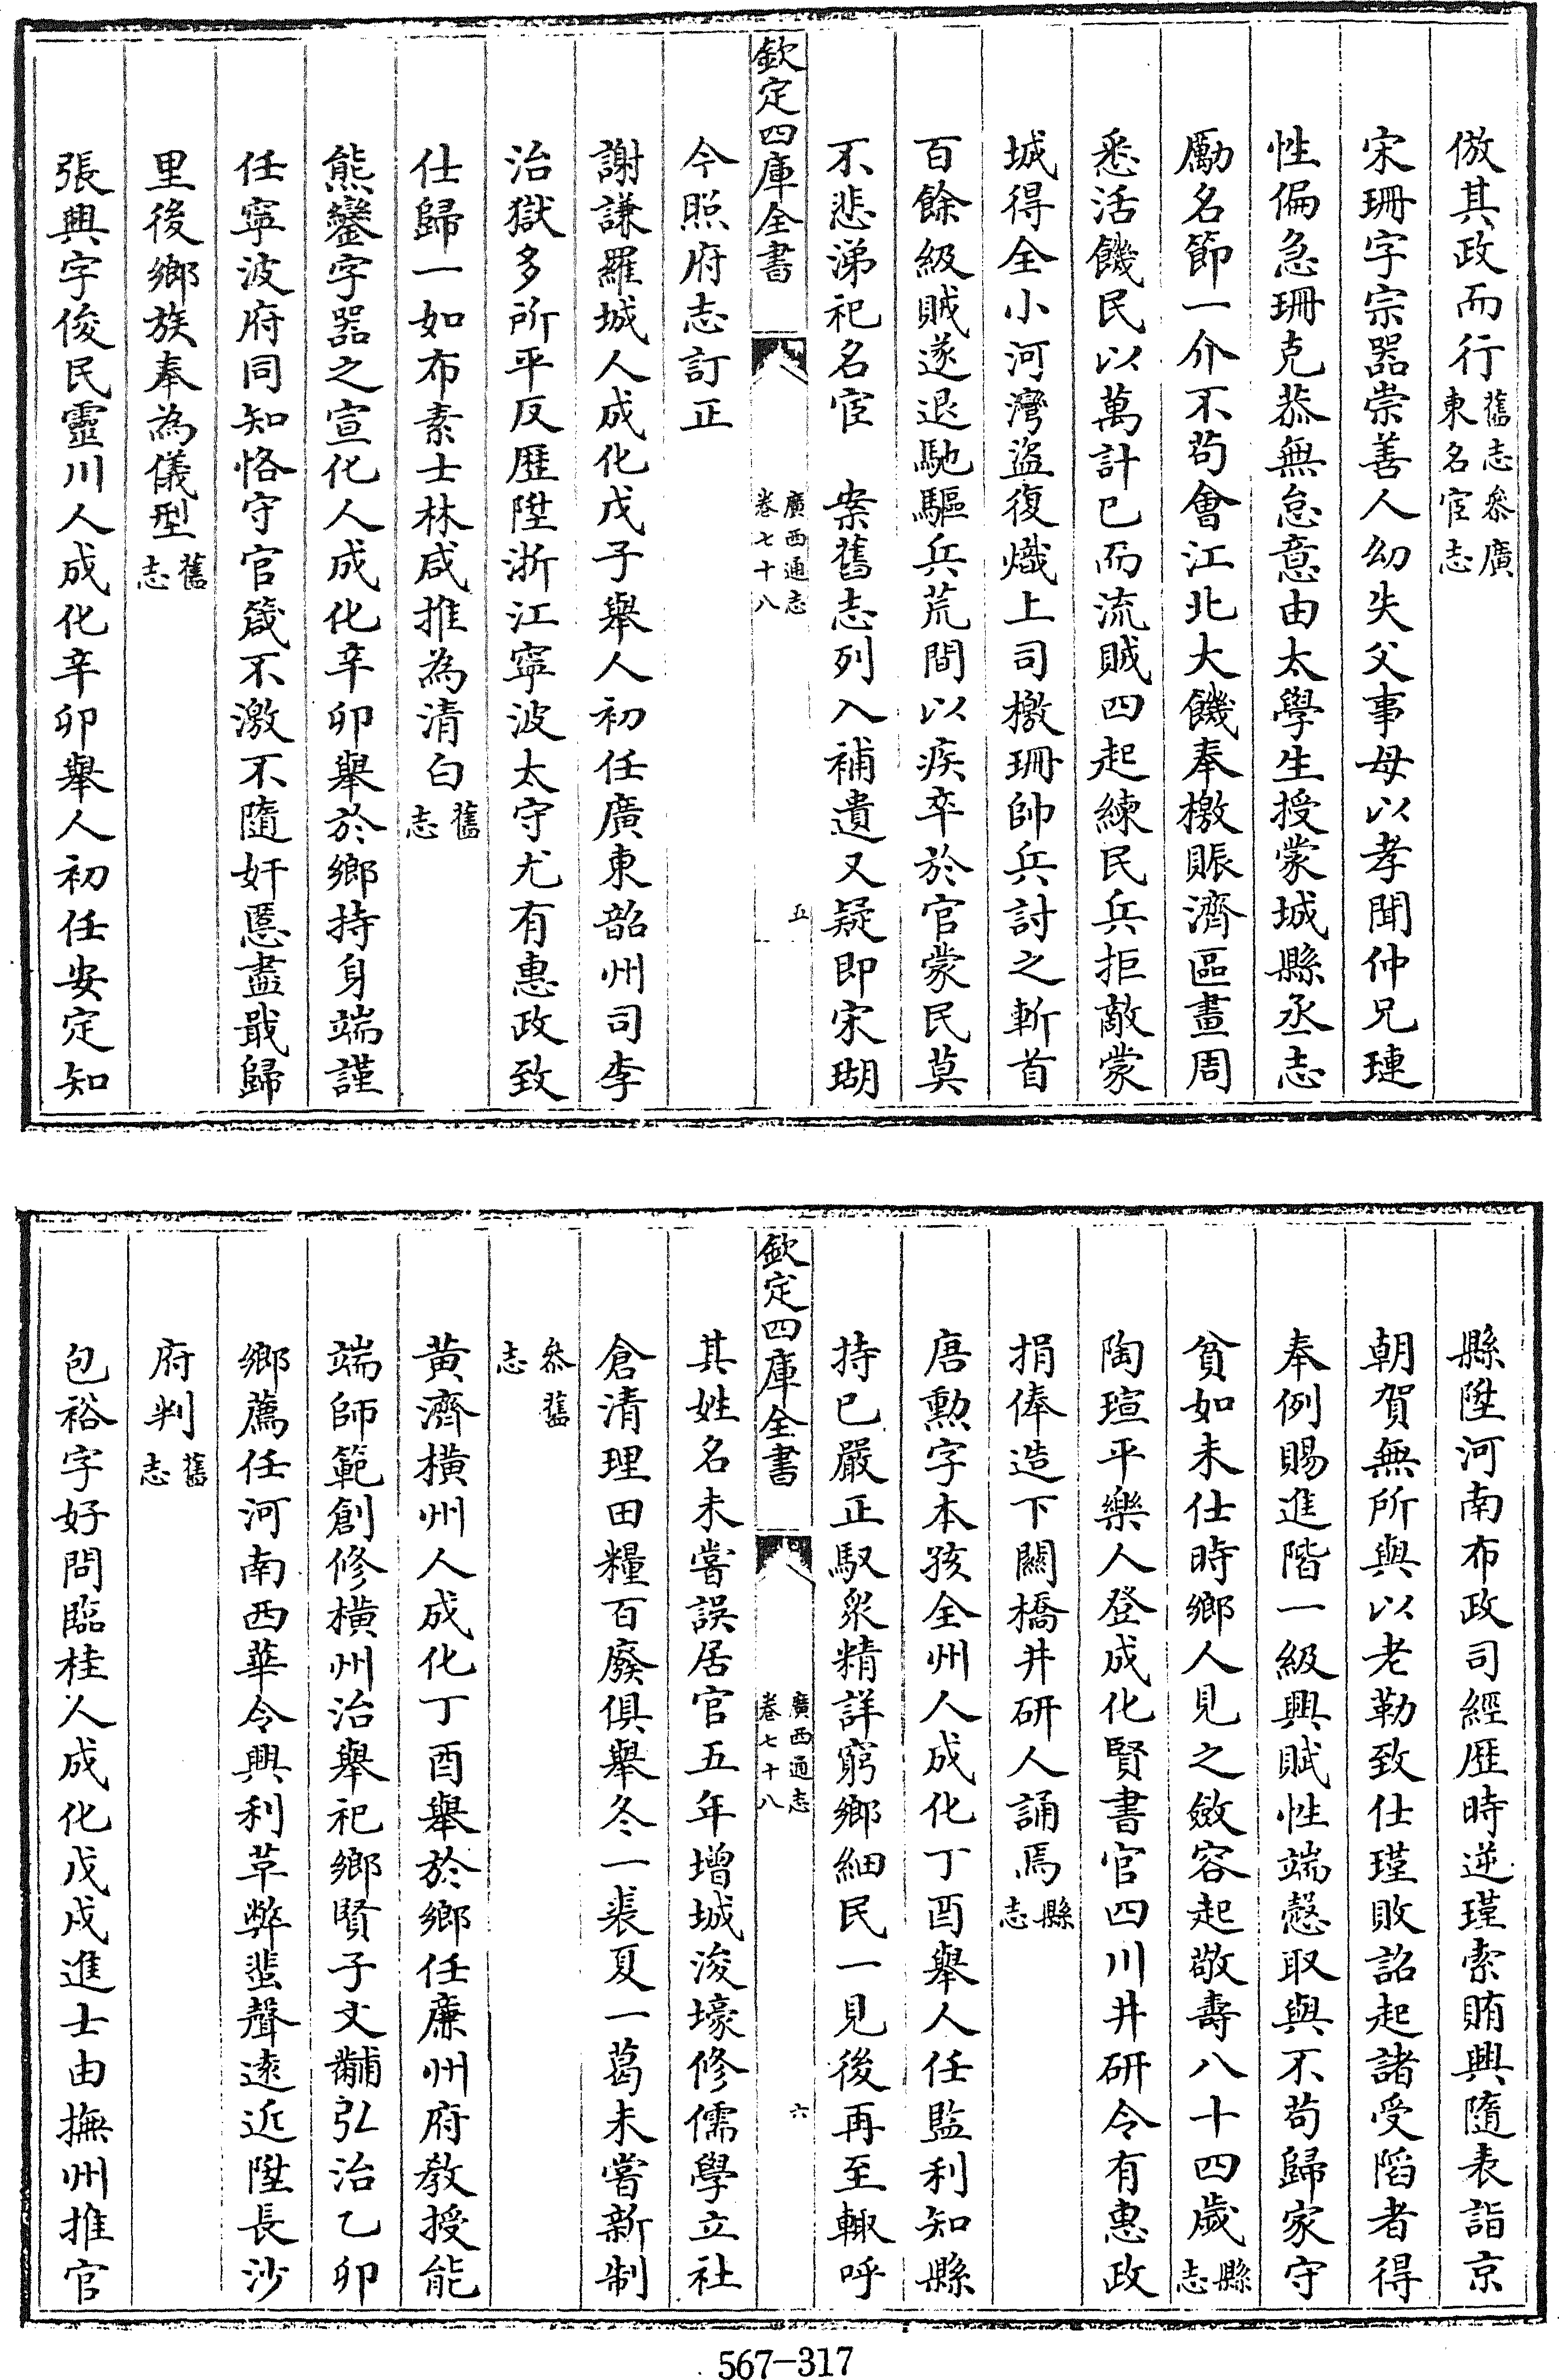 倣其政而行舊志參廣東名宦志
宋珊字宗器崇善人幼失父事母以孝聞仲兄璉
性偏急珊克恭無怠意由太學生授蒙城縣丞志
勵名節一介不苟會江北大饑奉檄賑濟區畫周
悉活饑民以萬計已而流賊四起練民兵拒敵蒙
城得全小河灣盜復熾上司檄珊帥兵討之斬首
百餘級賊遂退馳驅兵荒間以疾卒於官蒙民莫
不悲涕祀名宦　案舊志列入補遺又疑即宋瑚
欽定四庫全書　廣西通志卷七十八　五
今照府志訂正
謝謙羅城人成化戊子舉人初任廣東韶州司李
治獄多所平反歷陞浙江寧波太守尤有惠政致
仕歸一如布素士林咸推為清白舊志
熊鑾字器之宣化人成化辛卯舉於鄉持身端謹
任寧波府同知恪守官箴不激不隨奸慝盡戢歸
里後鄉族奉為儀型舊志
張興字俊民靈川人成化辛卯舉人初任安定知
縣陞河南布政司經歷時逆瑾索賄興隨表詣京
朝賀無所與以老勒致仕瑾敗詔起諸受謟者得
奉例賜進階一級興賦性端慤取與不苟歸家守
貧如未仕時鄉人見之斂容起敬壽八十四歲縣志
陶瑄平樂人登成化賢書官四川井研令有惠政
捐俸造下關橋井研人誦焉縣志
唐勲字本孩全州人成化丁酉舉人任監利知縣
持已嚴正馭衆精詳窮鄉細民一見後再至輙呼
欽定四庫全書　廣西通志卷七十八　六
其姓名未嘗誤居官五年增城浚壕修儒學立社
倉清理田糧百廢俱舉冬一裘夏一葛未嘗新制
參舊志
黃濟橫州人成化丁酉舉於鄉任廉州府教授能
端師範創修橫州治舉祀鄉賢子文黼弘治乙卯
鄉薦任河南西華令興利革弊蜚聲逺近陞長沙
府判舊志
包裕字好問臨桂人成化戊戌進士由撫州推官
567-317